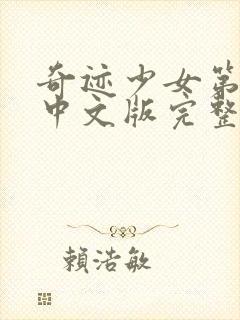 奇迹少女第
中文版完整
賴浩敏